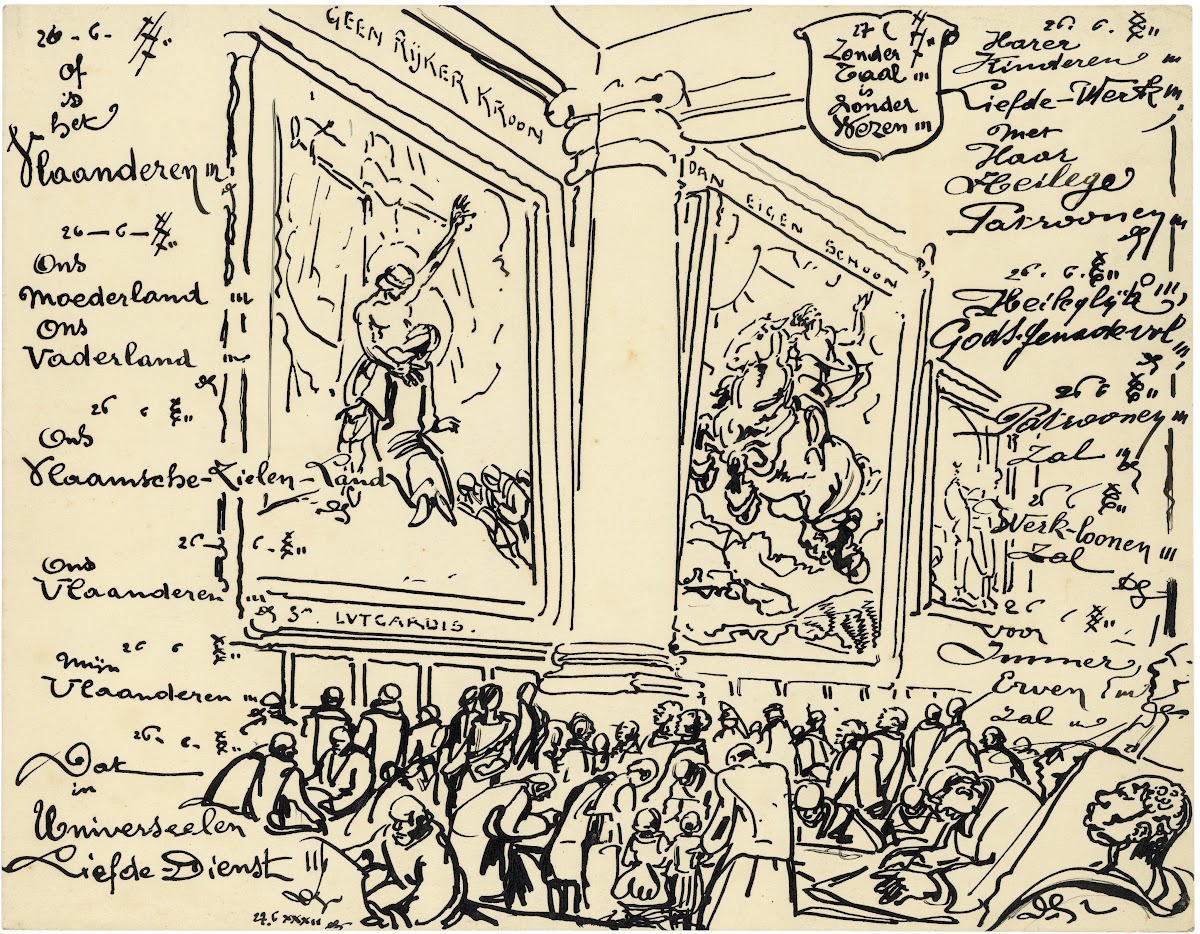 26-6-
Of
is
het
Vlaanderen
26-6-
Ons
Moederland
Ons
Vaderland
26 6
Ons
Vlaamsche-Zielen-Pand
26 6
Ons
Vlaanderen
26 6
Mijn
Vlaanderen
26-6-
Dat
in
Universeelen
Liefde-Dienst
27.6 XXXII
GEEN RIJKER KROON
ST. LUTGARDIS.
DAN EIGEN SCHOON
27
Zonder
Taal
is
Zonder
Wezen
26.6.
Harer
Kinderen
Liefde-Werk
Met
Haar
Heilege
Patroonen
26.6.
Heileglijk
26 6
Patroonen
Zal
26 6
Werk-loonen
Zal
26 6
voor
Immer
Erven
Zal